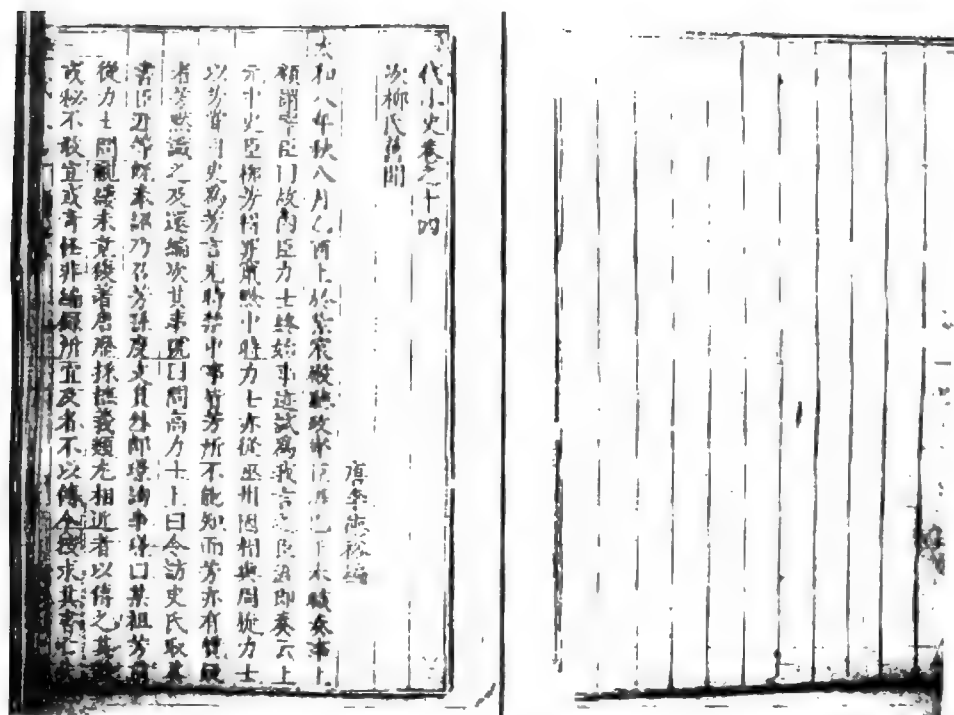 代小史卷之十四
次柳氏舊聞
唐李德裕編
太和八年秋八月乙酉上於紫宸殿聽政宰臣涯已下奉職奏事上
顧謂宰臣曰故內臣力士終始事迹試爲我言之臣涯即奏云上
元中史臣柳芳得罪竄黔中時力士亦從巫州因相與周旋力士
以芳嘗司史爲芳言先時禁中事皆芳所不能知而芳亦有質疑
者芳默識之及還編次其事號曰問高力士上曰令訪史氏取其
書臣涯等旣奉詔乃召芳孫度支員外郎璟詢事璟曰某祖芳前
從力士問覼縷未竟後著唐歷採摭義類尤相近者以傳之其餘
或秘不敢宣或奇怪非編錄所宜及者不以傳今按求其書亡